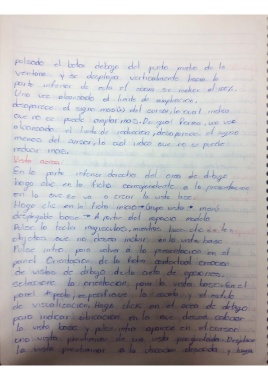 pulsado el botón debajo del punto medio de la
ventana y se desplaza verticalmente hacia la
parte inferior de esta el
Una vez alcanzado el límite de ampliación,
desaparece el signo mas(+) del cursor, lo cual indica
que no se puede ampliar mas. De igual forma, una vez
alcanzado el límite de reducción, desaparece el signo
menos del cursor, lo cual indica que no se puede
reducir mas.
Vista
En la parte inferior derecha del area de dibujo,
haga clic en la ficha correspondiente a la presentacion
en la que se va a crear la vista base.
Haga clic en la ficha grupo vista menú
desplegable base A partir del espacio modelo
Pulse la tecla mayúsculas, mientras hace clic en los
objetos que no desea incluir en la vista base.
Pulse intro para volver a la presentación en el
panel Orientación de la ficha contextual creación
de vistas de dibujo de la cinta de opciones,
seleccione la orientación para la vista base. En el
panel especifique la escala y el estilo
de visualización. Haga clic en el area de dibujo
para indicar ubicación en la que desea colocar
la vista base y pulse intro aparece en el cursor
una vista preliminar de una vista proyectada. Desplace
la vista preliminar a la ubicación deseada y haga